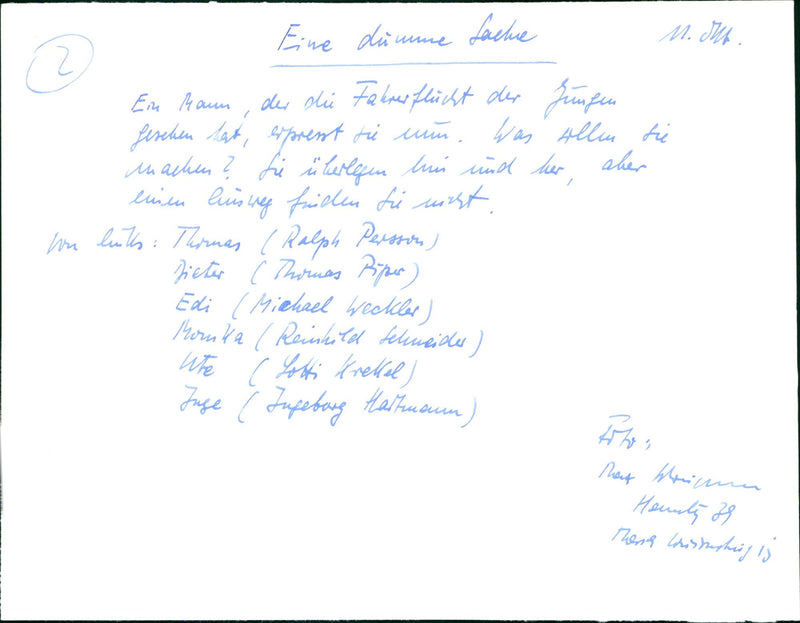 2
Eine dumme Sache
11. Okt.
Ein Mann, der die Fahrerflucht der Jungen
gesehen hat, erpresst sie nun. Was sollen sie
machen? Sie überlegen hin und her, aber
einen Ausweg finden sie nicht.
von links: Thomas (Ralph Persson)
Dieter (Thomas Piper)
Edi (Michael Weckler)
Monika (Reinhild Schneider)
Ute (Lotti Krekel)
Inge (Ingeborg Hartmann)
Foto: